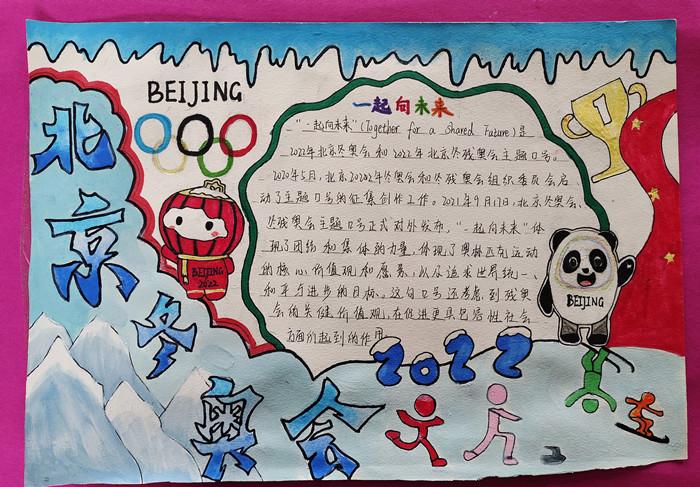 北京冬奥会
BEIJING
一起向未来
"一起向未来"(Together for a Shared Future)是
2022年北京冬奥会和2022年北京冬残奥会主题口号。
2020年5月,北京2022年冬奥会和冬残奥会组织委员会启
动了主题口号的征集创作工作。2021年9月17日,北京冬奥会、
冬残奥会主题口号正式对外发布,"一起向未来"体
现了团结和集体的力量,体现了奥林匹克运动
的核心价值观和愿景,以及追求世界统一、
和平与进步的目标。这句口号还考虑到残奥
会的关键价值观,在促进更具包容性社会
方面所起到的作用
BEIJING
2022
BEIJING
1
2022